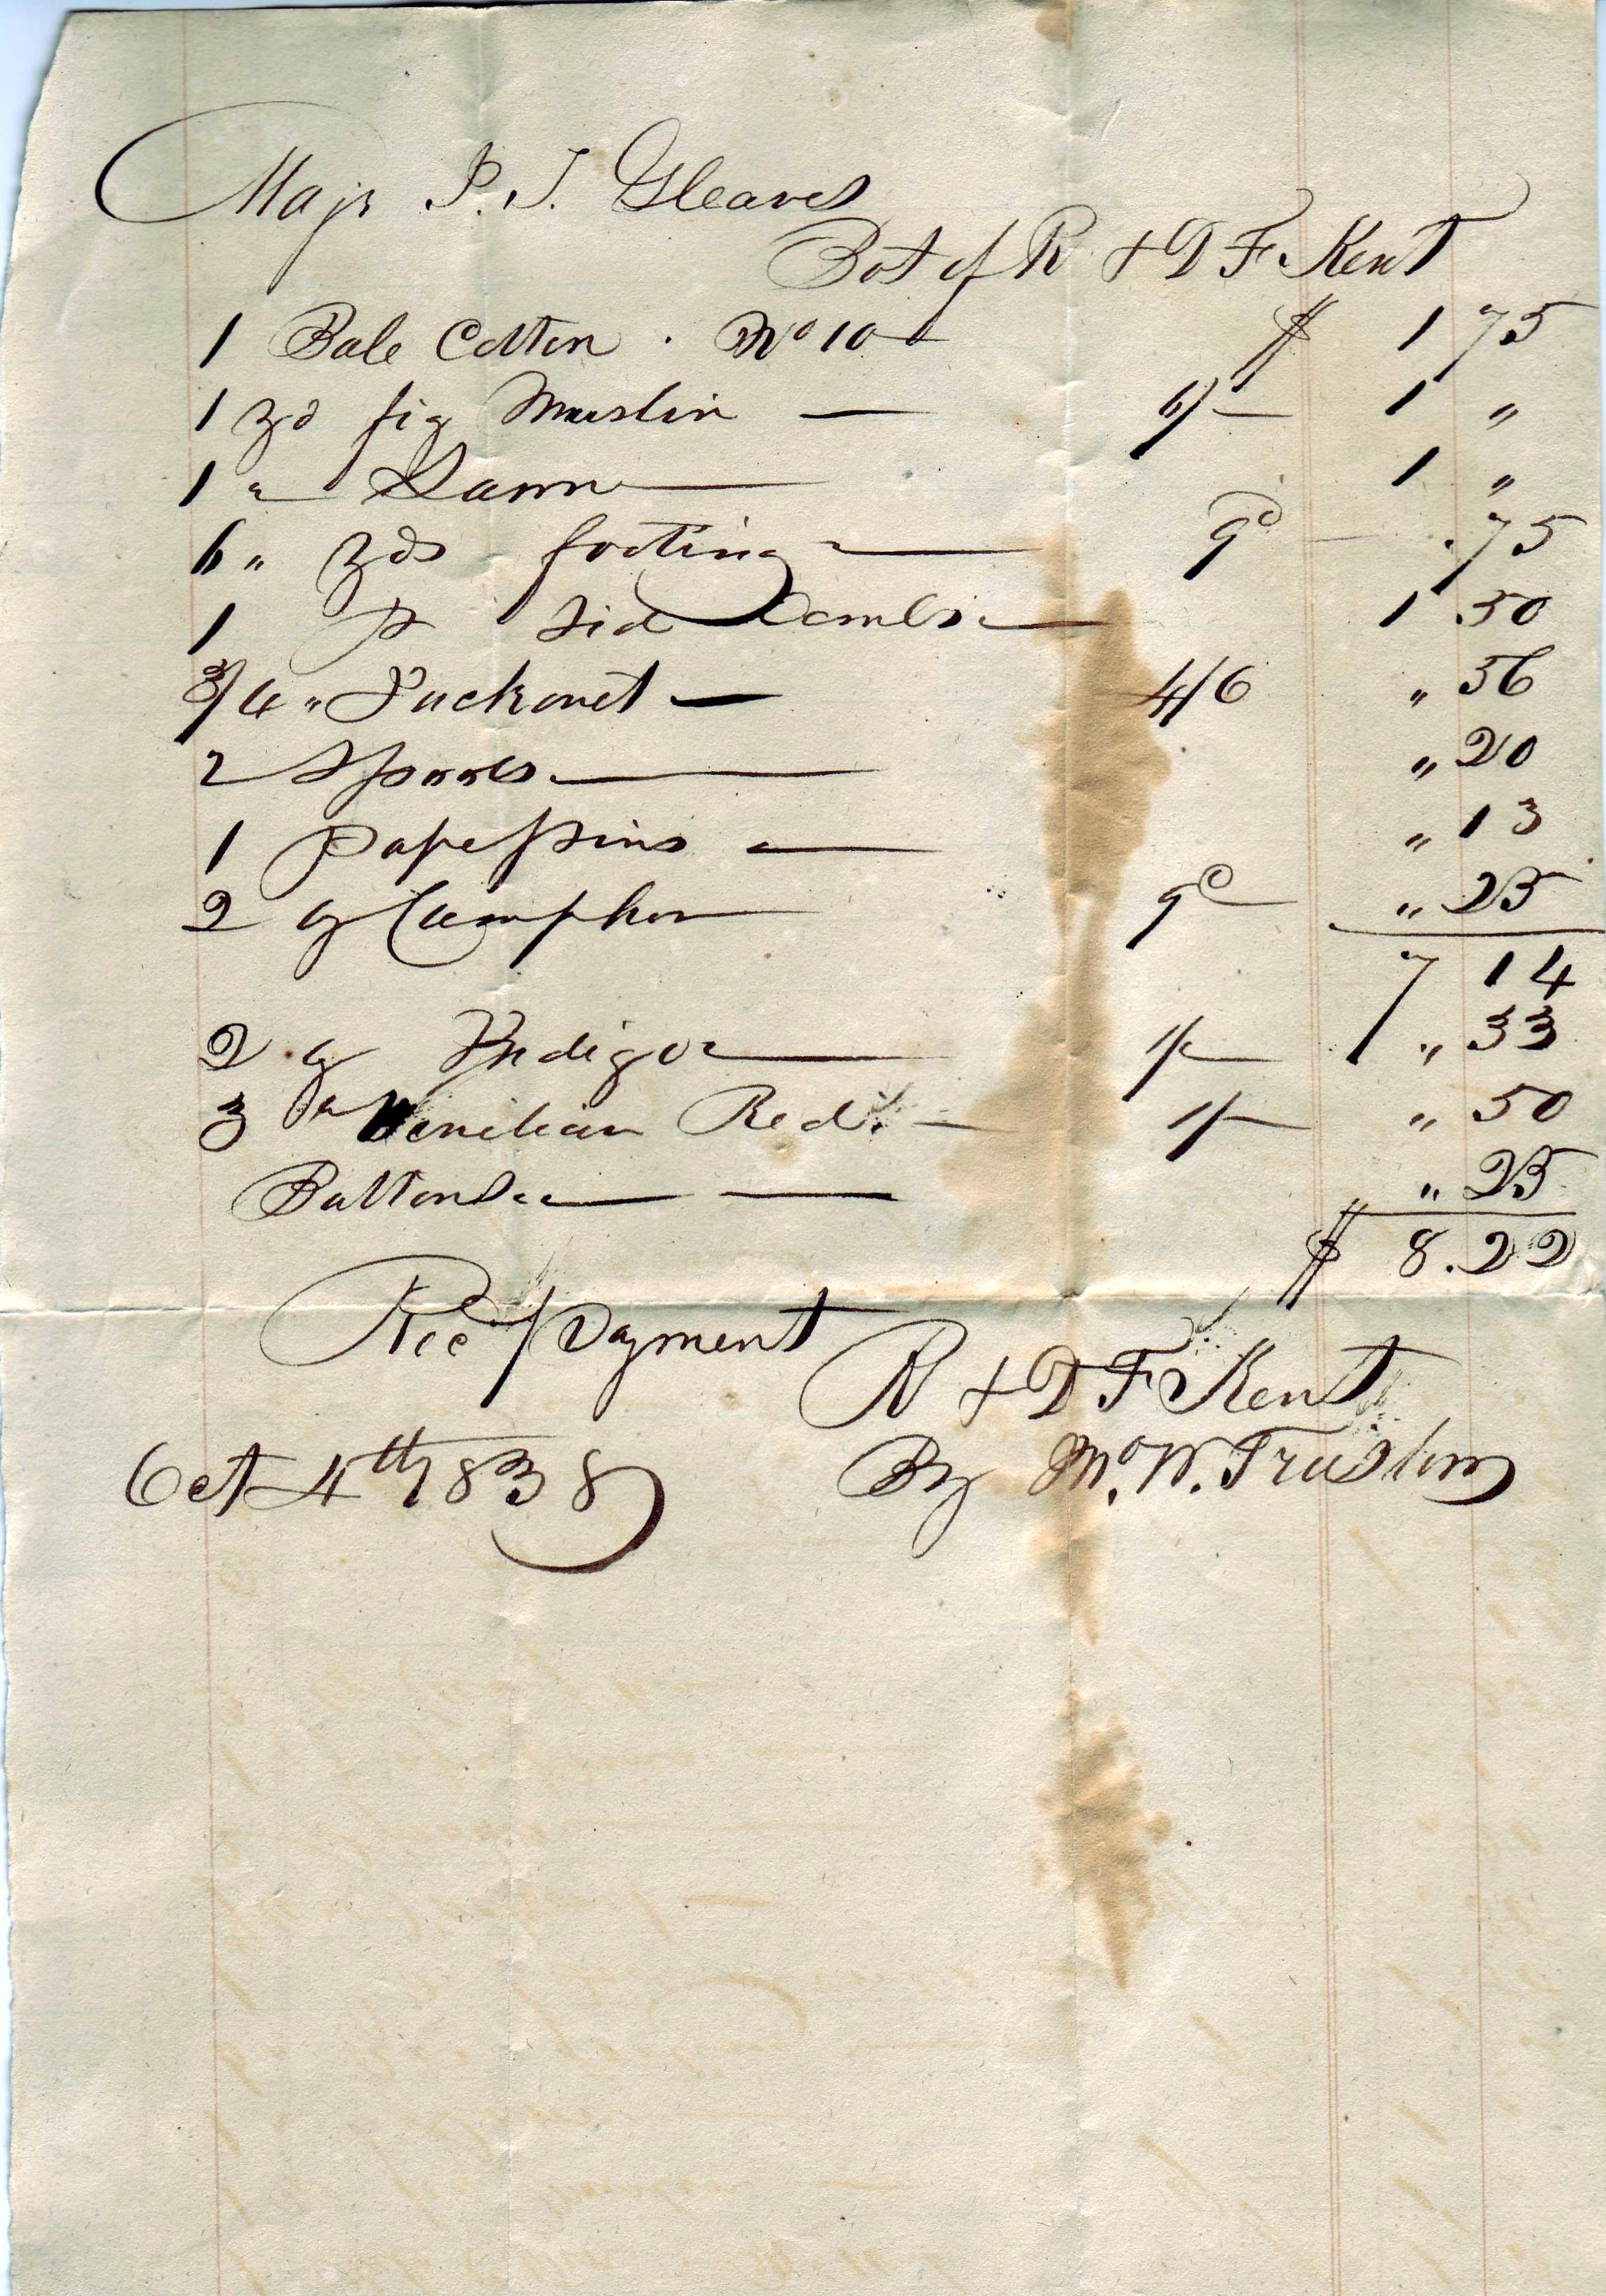 Majr P. T. Gleaves
Bot of R & D F Kent
1 Bale Cotton. No 10 $ 1 75
1 yd fig Muslin — 6/- 1 "
1 " Lawn — 1 "
6 " yds footing — 9d .75
1 p Sid Combs — 1 50
3/4 " Jackonet — 4/6 " 56
2 Spools — " 20
1 Pape pins — " 13
2 oz Camphor 9d " 25
7 14
2 oz Indigo — 1/- " 33
3 " Venitian Red. — 1/- " 50
Buttons — — " 25
$ 8.22
Recd payment
R & D F Kent
Oct 4th 1838
By W.